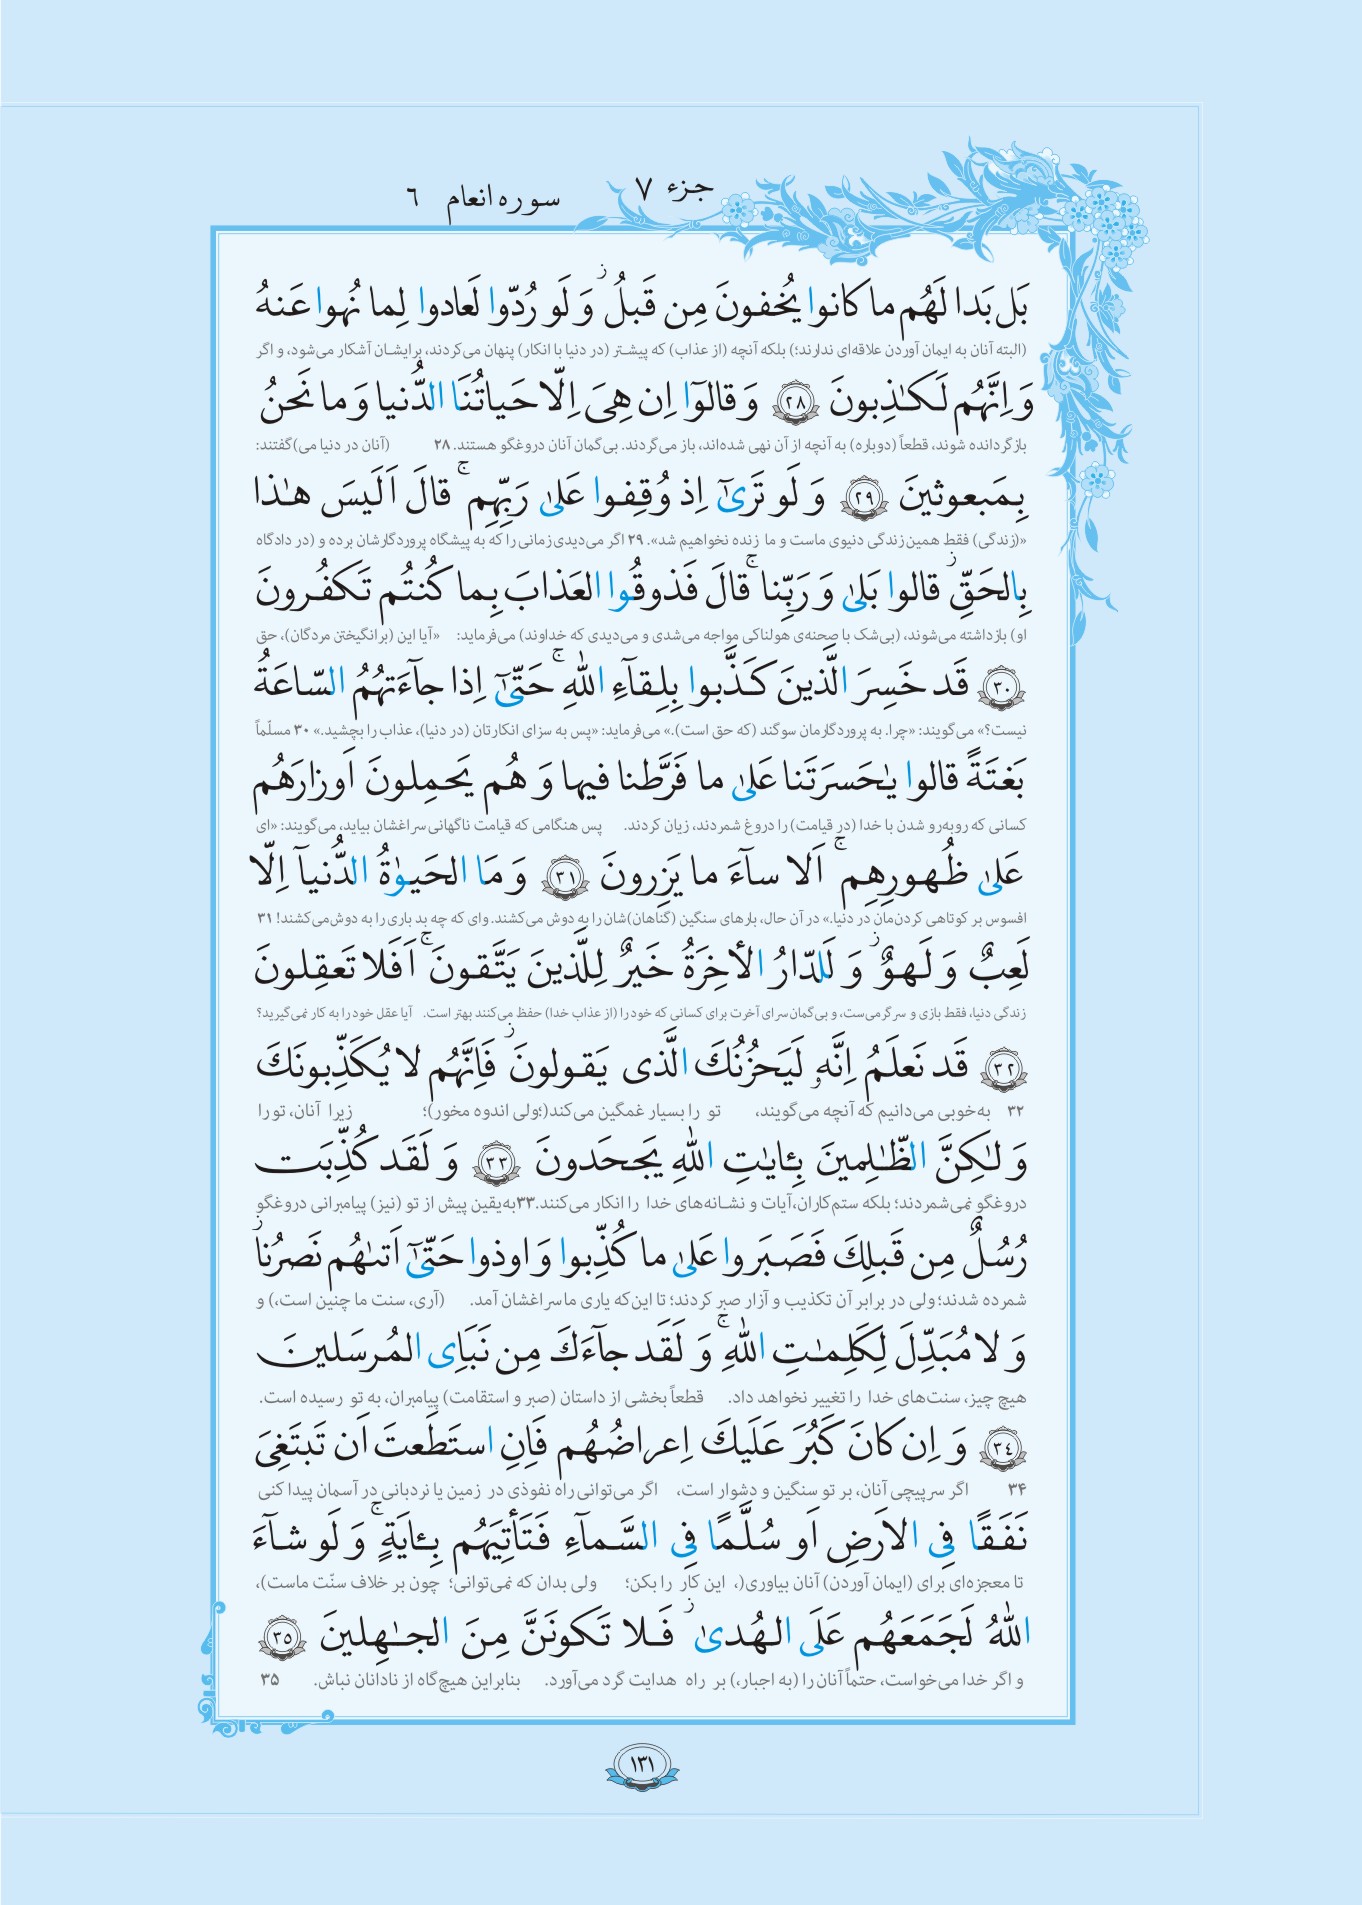 جزء ۷
سوره انعام ٦
بَل بَدا لَهُم ما كانوا يُخفونَ مِن قَبلُ ۖ وَ لَو رُدّوا لَعادوا لِما نُهوا عَنهُ
(البته آنان به ایمان آوردن علاقه‌ای ندارند؛) بلکه آنچه (از عذاب) که پیشتر (در دنیا با انکار) پنهان می‌کردند، برایشان آشکار می‌شود، و اگر
وَ اِنَّهُم لَكـٰذِبونَ ۲۸ وَ قالوٓا اِن هِىَ اِلّا حَياتُنَا الدُّنيا وَ ما نَحنُ
بازگردانده شوند، قطعاً (دوباره) به آنچه از آن نهی شده‌اند، باز می‌گردند. بی‌گمان آنان دروغگو هستند. ۲۸ (آنان در دنیا می)گفتند:
بِمَبعوثينَ ۲۹ وَ لَو تَرىٰٓ اِذ وُقِفوا عَلىٰ رَبِّهِم ۚ قالَ اَلَيسَ هـٰذا
«(زندگی) فقط همین زندگی دنیوی ماست و ما زنده نخواهیم شد». ۲۹ اگر می‌دیدی زمانی را که به پیشگاه پروردگارشان برده و (در دادگاه
بِالحَقِّ ۖ قالوا بَلىٰ وَ رَبِّنا ۚ قالَ فَذوقُوا العَذابَ بِما كُنتُم تَكفُرونَ
او) بازداشته می‌شوند، (بی‌شک با صحنه‌ی هولناکی مواجه می‌شدی و می‌دیدی که خداوند) می‌فرماید: «آیا این (برانگیختن مردگان)، حق
۳۰ قَد خَسِرَ الَّذينَ كَذَّبوا بِلِقآءِ اللّٰهِ ۚ حَتّىٰٓ اِذا جآءَتهُمُ السّاعَةُ
نیست؟» می‌گویند: «چرا. به پروردگارمان سوگند (که حق است).» می‌فرماید: «پس به سزای انکارتان (در دنیا)، عذاب را بچشید.» ۳۰ مسلّماً
بَغتَةً قالوا يـٰحَسرَتَنا عَلىٰ ما فَرَّطنا فيها وَ هُم يَحمِلونَ اَوزارَهُم
کسانی که روبه‌رو شدن با خدا (در قیامت) را دروغ شمردند، زیان کردند. پس هنگامی که قیامت ناگهانی سراغشان بیاید، می‌گویند: «ای
عَلىٰ ظُهورِهِم ۚ اَلا سآءَ ما يَزِرونَ ۳۱ وَ مَا الحَيوٰةُ الدُّنيآ اِلّا
افسوس بر کوتاهی کردن‌مان در دنیا.» در آن حال، بارهای سنگین (گناهان)شان را به دوش می‌کشند. وای که چه بد باری را به دوش می‌کشند! ۳۱
لَعِبٌ وَ لَهوٌ ۖ وَ لَلدّارُ الأخِرَةُ خَيرٌ لِلَّذينَ يَتَّقونَ ۚ اَفَلا تَعقِلونَ
زندگی دنیا، فقط بازی و سرگرمی‌ست، و بی‌گمان سرای آخرت برای کسانی که خود را (از عذاب خدا) حفظ می‌کنند بهتر است. آیا عقل خود را به کار نمی‌گیرید؟
۳۲ قَد نَعلَمُ اِنَّهٗ لَيَحزُنُكَ الَّذى يَقولونَ ۖ فَاِنَّهُم لا يُكَذِّبونَكَ
۳۲ به‌خوبی می‌دانیم که آنچه می‌گویند، تو را بسیار غمگین می‌کند(؛ولی اندوه مخور)؛ زیرا آنان، تو را
وَ لـٰكِنَّ الظّـٰلِمينَ بِـٔايـٰتِ اللّٰهِ يَجحَدونَ ۳۳ وَ لَقَد كُذِّبَت
دروغگو نمی‌شمردند؛ بلکه ستم‌کاران،آیات و نشانه‌های خدا را انکار می‌کنند.۳۳به‌یقین پیش از تو (نیز) پیامبرانی دروغگو
رُسُلٌ مِن قَبلِكَ فَصَبَروا عَلىٰ ما كُذِّبوا وَ اوذوا حَتّىٰٓ اَتىٰهُم نَصرُنا ۖ
شمرده شدند؛ولی در برابر آن تکذیب و آزار صبر کردند؛ تا این‌که یاری ما سراغشان آمد. (آری، سنت ما چنین است،) و
وَ لا مُبَدِّلَ لِكَلِمـٰتِ اللّٰهِ ۚ وَ لَقَد جآءَكَ مِن نَبَاِى المُرسَلينَ
هیچ چیز، سنت‌های خدا را تغییر نخواهد داد. قطعاً بخشی از داستان (صبر و استقامت) پیامبران، به تو رسیده است.
۳٤ وَ اِن كانَ كَبُرَ عَلَيكَ اِعراضُهُم فَاِنِ استَطَعتَ اَن تَبتَغِىَ
۳۴ اگر سرپیچی آنان، بر تو سنگین و دشوار است، اگر می‌توانی راه نفوذی در زمین یا نردبانی در آسمان پیدا کنی
نَفَقًا فِى الاَرضِ اَو سُلَّمًا فِى السَّمآءِ فَتَأتِيَهُم بِـٔايَةٍ ۚ وَ لَو شآءَ
تا معجزه‌ای برای (ایمان آوردن) آنان بیاوری(، این کار را بکن؛ ولی بدان که نمی‌توانی؛ چون بر خلاف سنّت ماست)،
اللّٰهُ لَجَمَعَهُم عَلَى الهُدىٰ ۖ فَلا تَكونَنَّ مِنَ الجـٰهِلينَ ۳۵
و اگر خدا می‌خواست، حتماً آنان را (به اجبار،) بر راه هدایت گرد می‌آورد. بنابراین هیچ‌گاه از نادانان نباش. ۳۵
۱۳۱